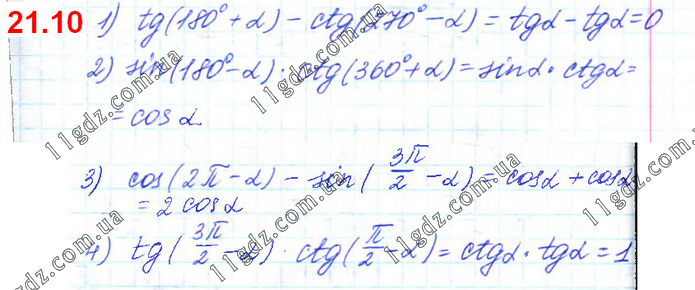 21.10 1) tg(180° + α) − ctg(270° − α) = tgα − tgα = 0
2) sin(180° − α) · ctg(360° + α) = sinα · ctgα =
= cos α
3) cos(2π − α) − sin(3π/2 − α) = cosα + cosα
= 2 cosα
4) tg(3π/2 − α) · ctg(π/2 − α) = ctgα · tgα = 1
11gdz.com.ua
11gdz.com.ua
11gdz.com.ua
11gdz.com.ua
11gdz.com.ua
11gdz.com.ua